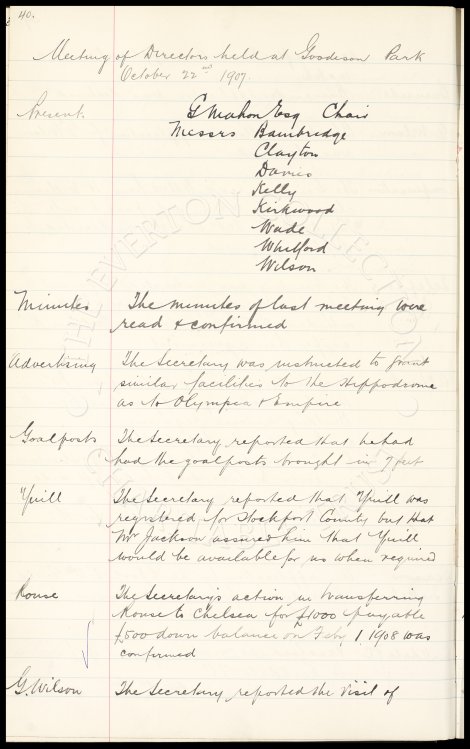 40.
Meeting of Directors held at Goodison Park
October 22nd 1907.
Present. G Mahon Esq Chair
Messrs Bainbridge
Clayton
Davies
Kelly
Kirkwood
Wade
Whitford
Wilson
Minutes The minutes of last meeting were
read & confirmed
Advertising The Secretary was instructed to grant
similar facilities to the Hippodrome
as to Olympia & Empire
Goalposts The Secretary reported that he had
had the goalposts brought in 7 feet
Yuill The Secretary reported that Yuill was
registered for Stockport County but that
Mr Jackson assured him that Yuill
would be available for us when required
Rouse The Secretary's action in transferring
Rouse to Chelsea for £1000 payable
£500 down balance on Feby 1. 1908 was
confirmed
G. Wilson The Secretary reported the visit of
THE EVERTON COLLECTION